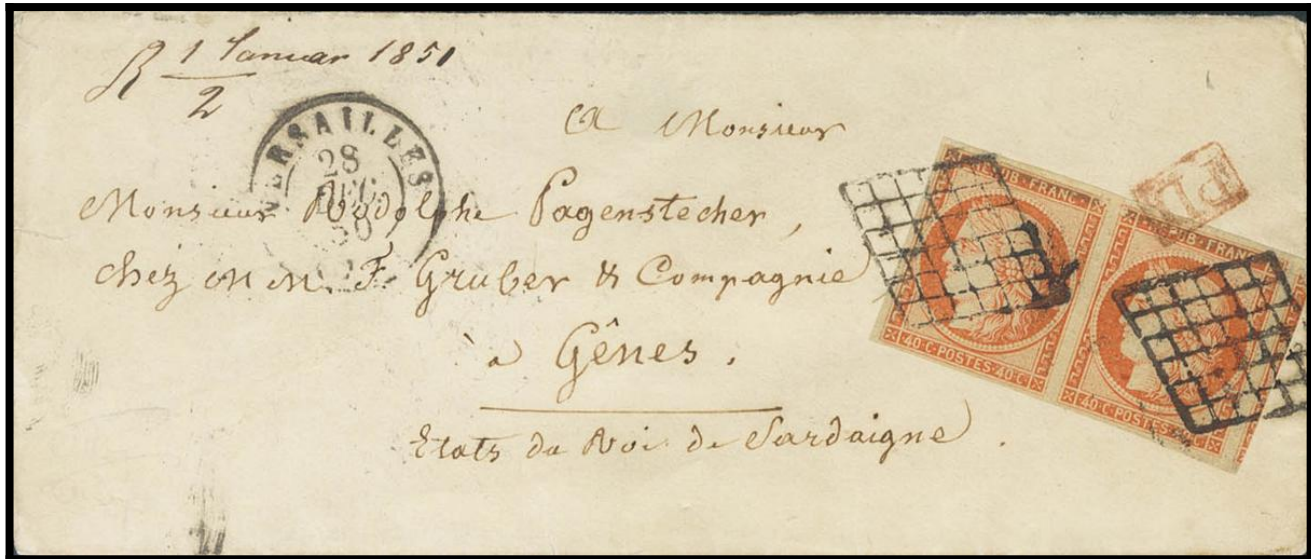 R 1 Januar 1851
2
VERSAILLES
28
DEC.
50
A Monsieur
Monsieur Rodolphe Pagenstecher,
chez M M. F. Gruber & Compagnie
à Gênes.
Etats du Roi de Sardaigne.
PD
REPUB·FRANC·
40·C·POSTES·40·C
REPUB·FRANC·
40·C·POSTES·40·C